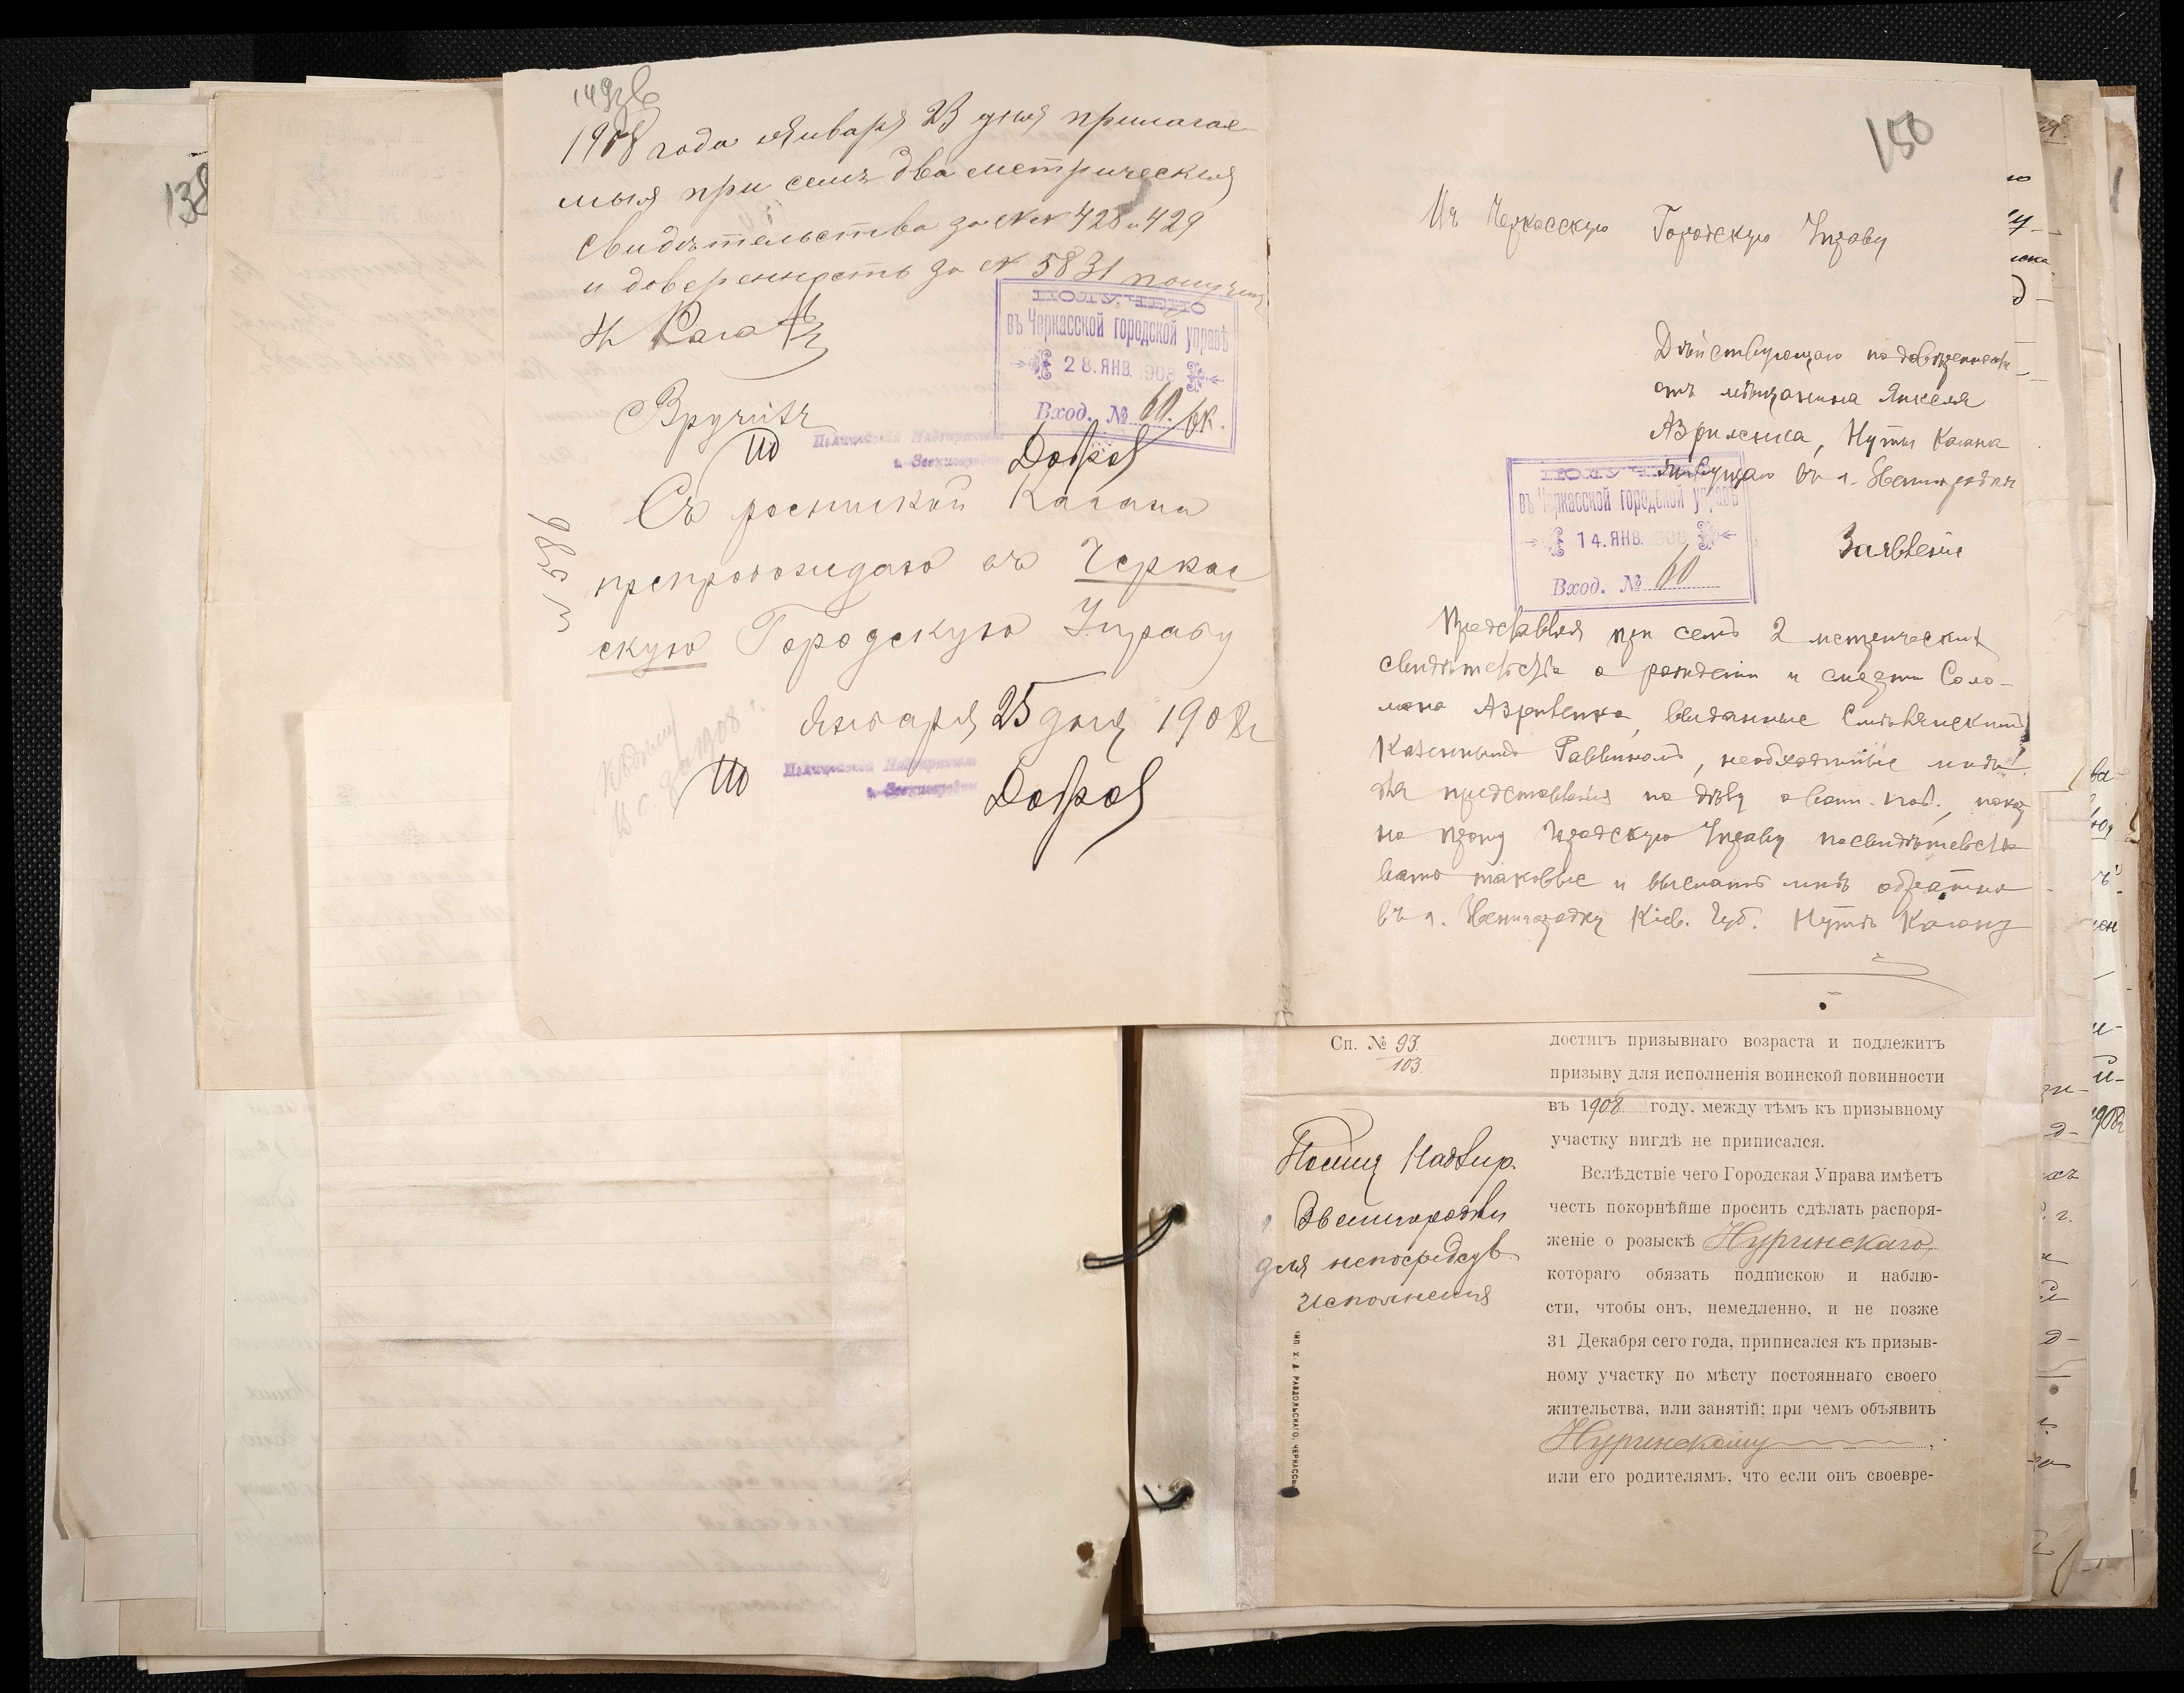 138
149об
1908 года Января 23 дня прилагае-
мыя при семъ два метрическия
свидѣтельства за №№ 428 и 429
и доверенность за № 5831 получилъ
Н Каганъ
ПОЛУЧЕНО
въ Черкасской городской управѣ
28. ЯНВ. 1908
Вход. № 60. ок.
Вручить
Полицейскій Надзиратель
г. Звенигородки
Съ роспиской Кагана
препровождаю въ Черкас
скую Городскую Управу
Января 25 дня 1908 г
Полицейскій Надзиратель
г. Звенигородки
150
Въ Черкасскую Городскую Управу
Дѣйствующаго по довѣренности
отъ мѣщанина Янкеля
Азриленка, Нути Кагана
живущаго въ г. Звенигородкѣ
ПОЛУЧЕНО
въ Черкасской городской управѣ
14. ЯНВ. 1908
Вход. № 60
Заявленіе
Представляя при семъ 2 метрическихъ
свидѣтельства о рожденіи и смерти Соло-
мона Азриленко, выданные
Казеннымъ Раввиномъ, необходимые мнѣ
для представленія по дѣлу о воин. пов., покор
но прошу Городскую Управу посвидѣтельство
вать таковые и выслать мнѣ обратно
въ г. Звенигородку Кіев. Губ. Нута Каганъ
Сп. № 93.
103.
достигъ призывнаго возраста и подлежитъ
призыву для исполненія воинской повинности
въ 1908 году, между тѣмъ къ призывному
участку нигдѣ не приписался.
Вслѣдствіе чего Городская Управа имѣетъ
честь покорнѣйше просить сдѣлать распоря-
женіе о розыскѣ Нургинскаго,
котораго обязать подпискою и наблю-
сти, чтобы онъ, немедленно, и не позже
31 Декабря сего года, приписался къ призыв-
ному участку по мѣсту постояннаго своего
жительства, или занятій; при чемъ объявить
Нургинскому,
или его родителямъ, что если онъ своевре-
Полиц Надзир.
г. Звенигородки
для непосредств
исполнения
ТИП. Х. Д. РАВДОЛЬСКАГО, ЧЕРКАССЫ